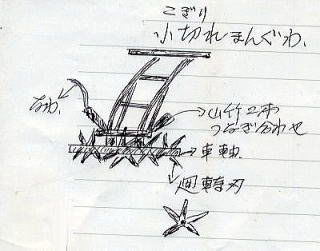 こぎり
小切れまんぐわ
なわ
山竹2本
つなぎ合わせ
車軸
廻轉刃